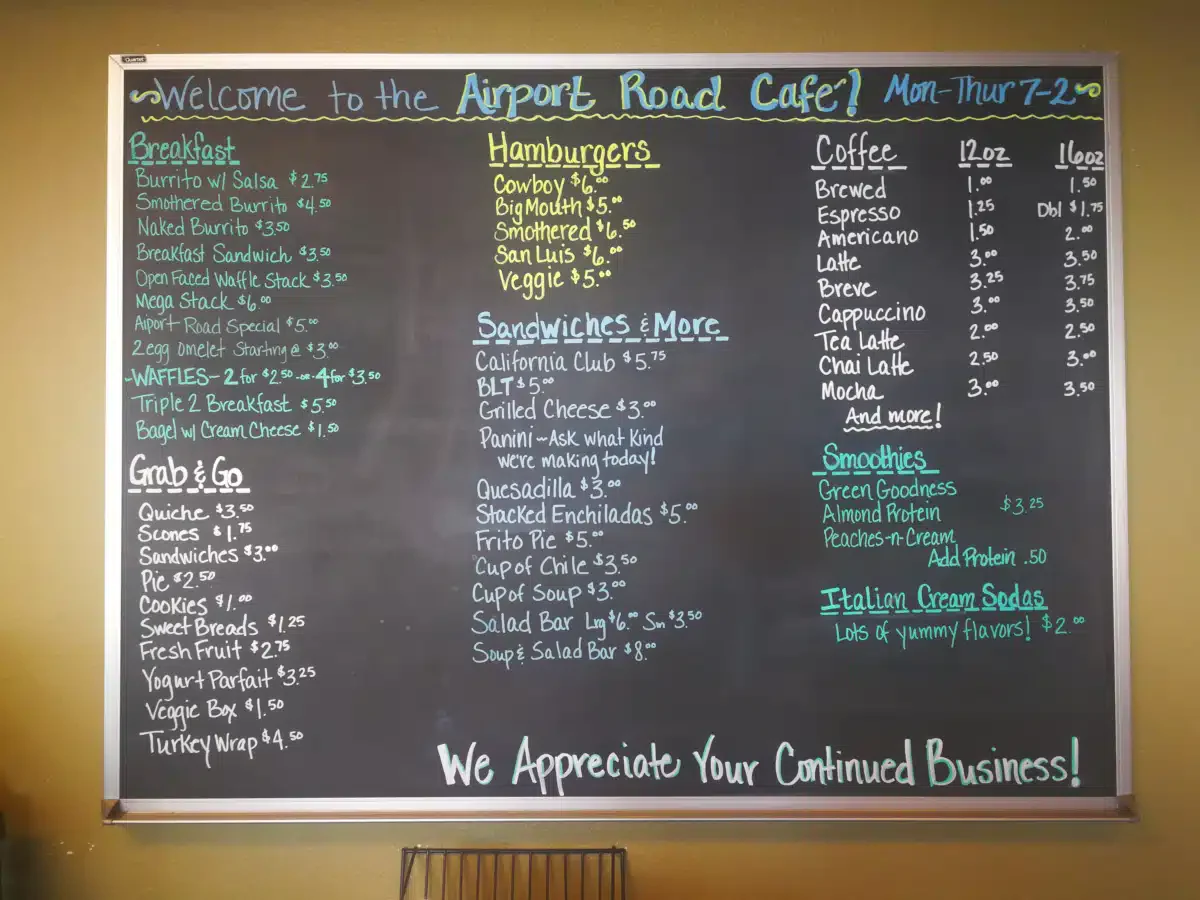 Quartet
Welcome to the Airport Road Cafe! Mon-Thur 7-2
Breakfast
Burrito w/ Salsa $2.75
Smothered Burrito $4.50
Naked Burrito $3.50
Breakfast Sandwich $3.50
Open Faced Waffle Stack $3.50
Mega Stack $6.00
Aiport Road Special $5.00
2 egg omelet Starting @ $3.00
-WAFFLES- 2 for $2.50 -or- 4 for $3.50
Triple 2 Breakfast $5.50
Bagel w/ Cream Cheese $1.50
Grab & Go
Quiche $3.50
Scones $1.75
Sandwiches $3.00
Pie $2.50
Cookies $1.00
Sweet Breads $1.25
Fresh Fruit $2.75
Yogurt Parfait $3.25
Veggie Box $1.50
Turkey Wrap $4.50
Hamburgers
Cowboy $6.00
Big Mouth $5.00
Smothered $6.50
San Luis $6.00
Veggie $5.00
Sandwiches & More
California Club $5.75
BLT $5.00
Grilled Cheese $3.00
Panini~Ask what kind
we're making today!
Quesadilla $3.00
Stacked Enchiladas $5.00
Frito Pie $5.00
Cup of Chile $3.50
Cup of Soup $3.00
Salad Bar Lrg $6.00 Sm $3.50
Soup & Salad Bar $8.00
Coffee 12oz 16oz
Brewed 1.00 1.50
Espresso 1.25 Dbl $1.75
Americano 1.50 2.00
Latte 3.00 3.50
Breve 3.25 3.75
Cappuccino 3.00 3.50
Tea Latte 2.00 2.50
Chai Latte 2.50 3.00
Mocha 3.00 3.50
And more!
Smoothies
Green Goodness
Almond Protein $3.25
Peaches-n-Cream
Add Protein .50
Italian Cream Sodas
Lots of yummy flavors! $2.00
We Appreciate Your Continued Business!